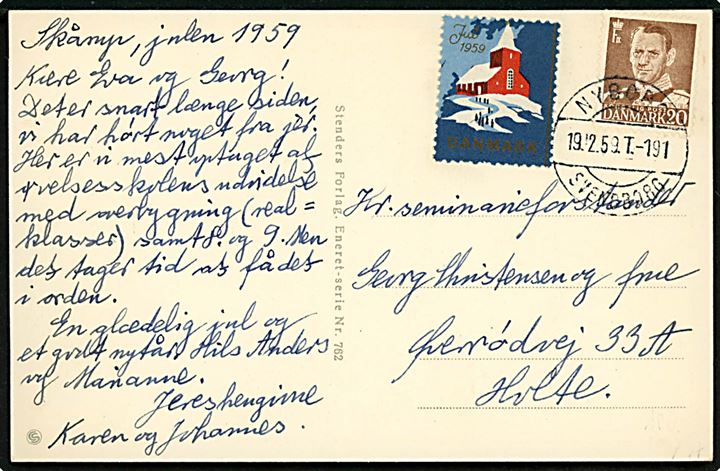 Skårup, julen 1959
Kære Eva og Georg!
Det er snart længe siden,
vi har hørt noget fra jer.
Her er vi mest optaget af
øvelsesskolens udvidelse
med overbygning (real=
klasser) samt 8. og 9. Men
det tager tid at få det
i orden.
En glædelig jul og
et godt nytår. Hils Anders
og Marianne.
Jeres hengivne
Karen og Johannes.
Stenders Forlag. Eneret-serie Nr. 762
Jul
1959
DANMARK
DANMARK 20
NYBORG
19.12.59. T.-191
SVENDBORG
Hr. seminarieforstander
Georg Christensen og frue
Øverødvej 33 A
Holte.